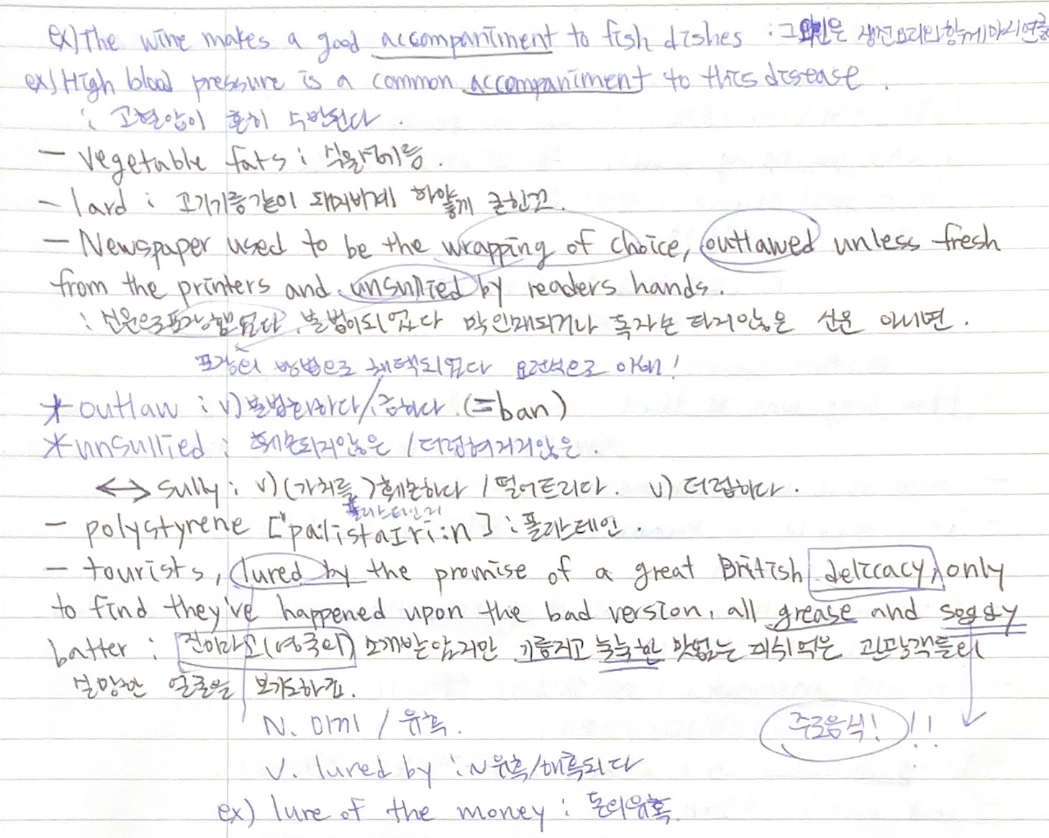 ex) The wine makes a good accompaniment to fish dishes : 그 와인은 생선요리와 함께 마시면
ex) High blood pressure is a common accompaniment to this disease.
: 고혈압이 흔히 수반된다.
- vegetable fats : 식물성기름
- lard : 고기기름같이 돼지비계 하얗게 굳힌것.
- Newspaper used to be the wrapping of choice, outlawed unless fresh
from the printers and unsullied by readers hands.
: 신문으로 포장했었다. 불법이 되었다 막 인쇄되거나 독자손 타지않은 신문 아니면.
포장의 방법으로 채택되었다
*outlaw : v) 불법화하다/금하다 (=ban)
*unsullied : 훼손되지않은 / 더럽혀지지않은.
↔ sully : v) (가치를) 훼손하다 / 떨어트리다. v) 더럽히다.
- polystyrene [ˈpa:listaɪri:n] : 폴리스테인.
- tourists, lured by the promise of a great British delicacy, only
to find they've happened upon the bad version, all grease and soggy
batter : 진미라고 (영국의) 소개받았지만 기름지고 눅눅한 맛없는 피쉬 먹은 관광객들의
실망한 얼굴을 보기도하죠.
N. 미끼 / 유혹.
주로음식! !!
V. lured by : 유혹/매혹되다
ex) lure of the money : 돈의유혹